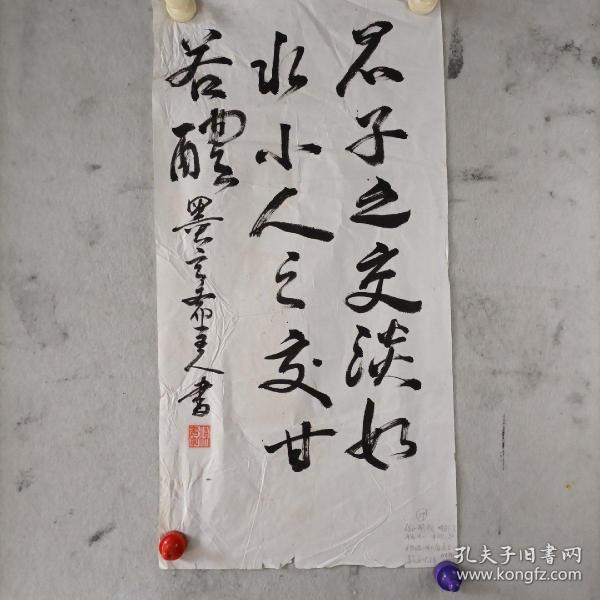 君子之交淡如
水小人之交甘
若醴
墨之斋主人书
孔夫子旧书网
www.kongfz.com